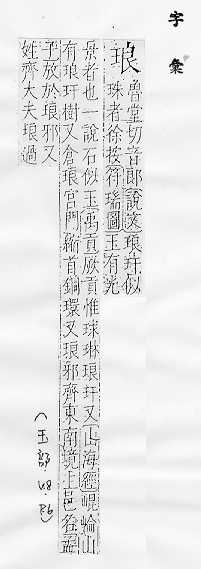 字彙
琅 魯堂切音郎說文琅玕似
珠者徐按符瑞圖玉有光
景者也一說石似玉禹貢厥貢惟球琳琅玕又山海經崐崙山
有琅玕樹又倉琅宮門鋪首銅環又琅邪齊東南境上邑名孟
子放於琅邪又
姓齊大夫琅過
(玉部.48.86)